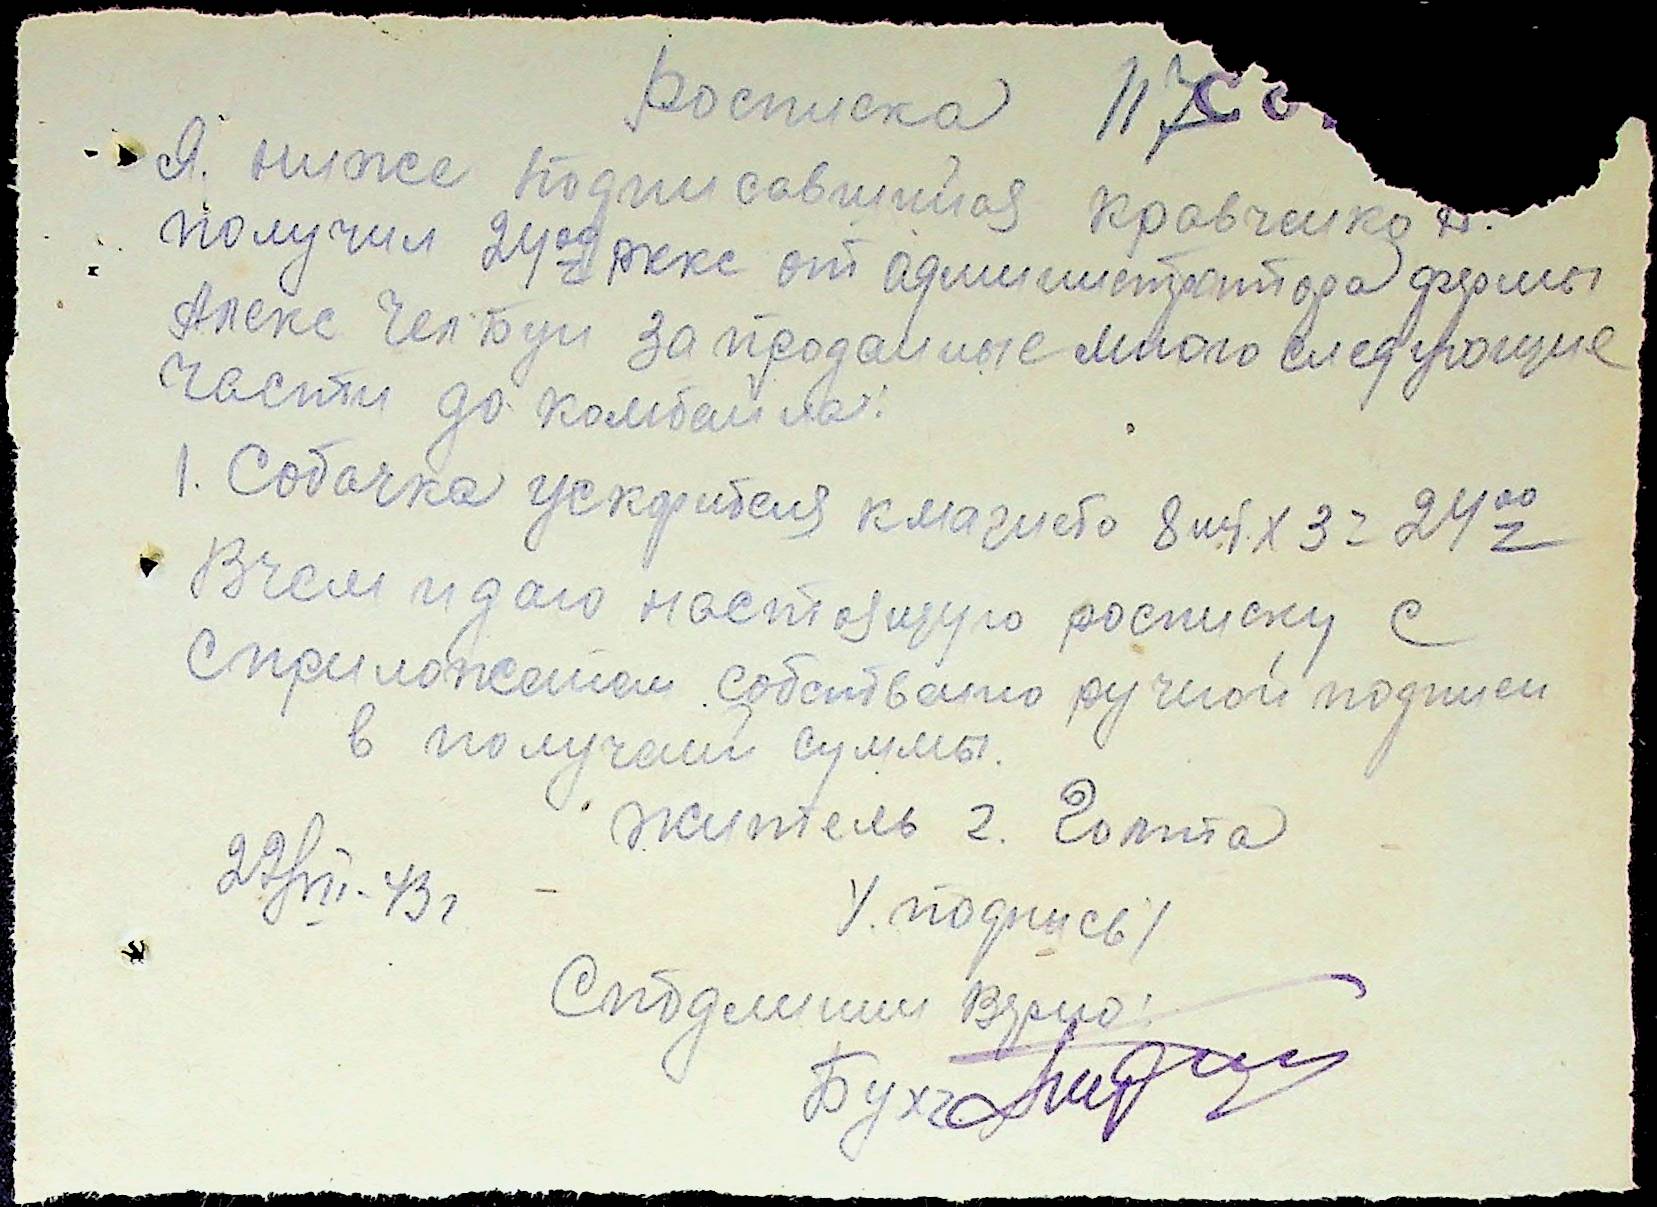 Росписка 117
Я. ниже подписавшийся Кравченко Н.
получил 24 00 рккс от администратора фермы
Алекс Челбун за проданные много следующие
части до комбайна:
1. Собачка ускорителя к магнето 8 шт. х 3 = 24 00
В чем и даю настоящую росписку с
с приложением собственно ручной подписи
в получений суммы.
житель г. Голта
22/VII-43 г
/. подпись/
С подлиним верно:
Бухг